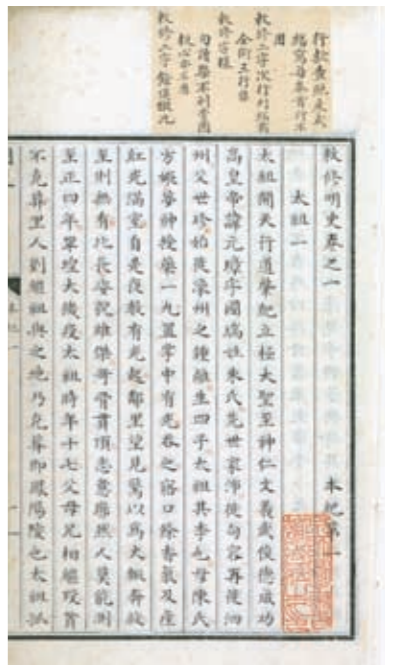 行款查照定式
繕寫每卷首行不
用
敕修二字次行列
全銜三行
敕修字樣
敕修二字
敕修明史卷之一
本紀第一
太祖一
太祖開天行道肇紀立極大聖至神仁文義武俊德成功
高皇帝諱元璋字國瑞姓朱氏先世家沛徙句容再徙泗
州父世珍始徙濠州之鍾離生四子太祖其季也母陳氏
方娠夢神授藥一丸置掌中有光吞之寤口餘香氣及產
紅光滿室自是夜數有光起鄰里望見驚以為火輒奔救
至則無有比長姿貌雄傑奇骨貫頂志意廓然人莫能測
至正四年旱蝗大饑疫太祖時年十七父母兄相繼歿貧
不克葬里人劉繼祖與之地乃克葬即鳳陽陵也太祖孤